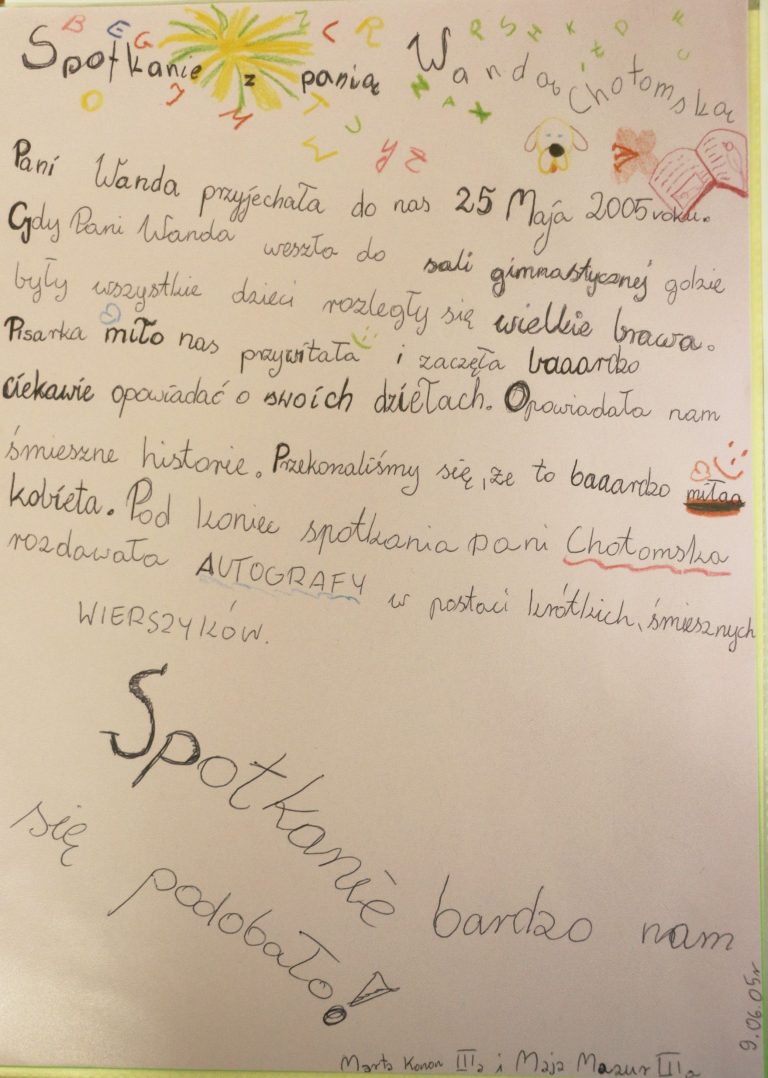 Spotkanie z panią Wandą Chotomską
Pani Wanda przyjechała do nas 25 Maja 2005 roku.
Gdy Pani Wanda weszła do sali gimnastycznej gdzie
były wszystkie dzieci rozległy się wielkie brawa.
Pisarka miło nas przywitała i zaczęła baaardzo
ciekawie opowiadać o swoich dziełach. Opowiadała nam
śmieszne historie. Przekonaliśmy się, że to baaardzo miła
kobieta. Pod koniec spotkania pani Chotomska
rozdawała AUTOGRAFY w postaci krótkich, śmiesznych
WIERSZYKÓW.
Spotkanie bardzo nam
się podobało!
9.06.05r
Marta Konon IIIa i Maja Mazur IIIa